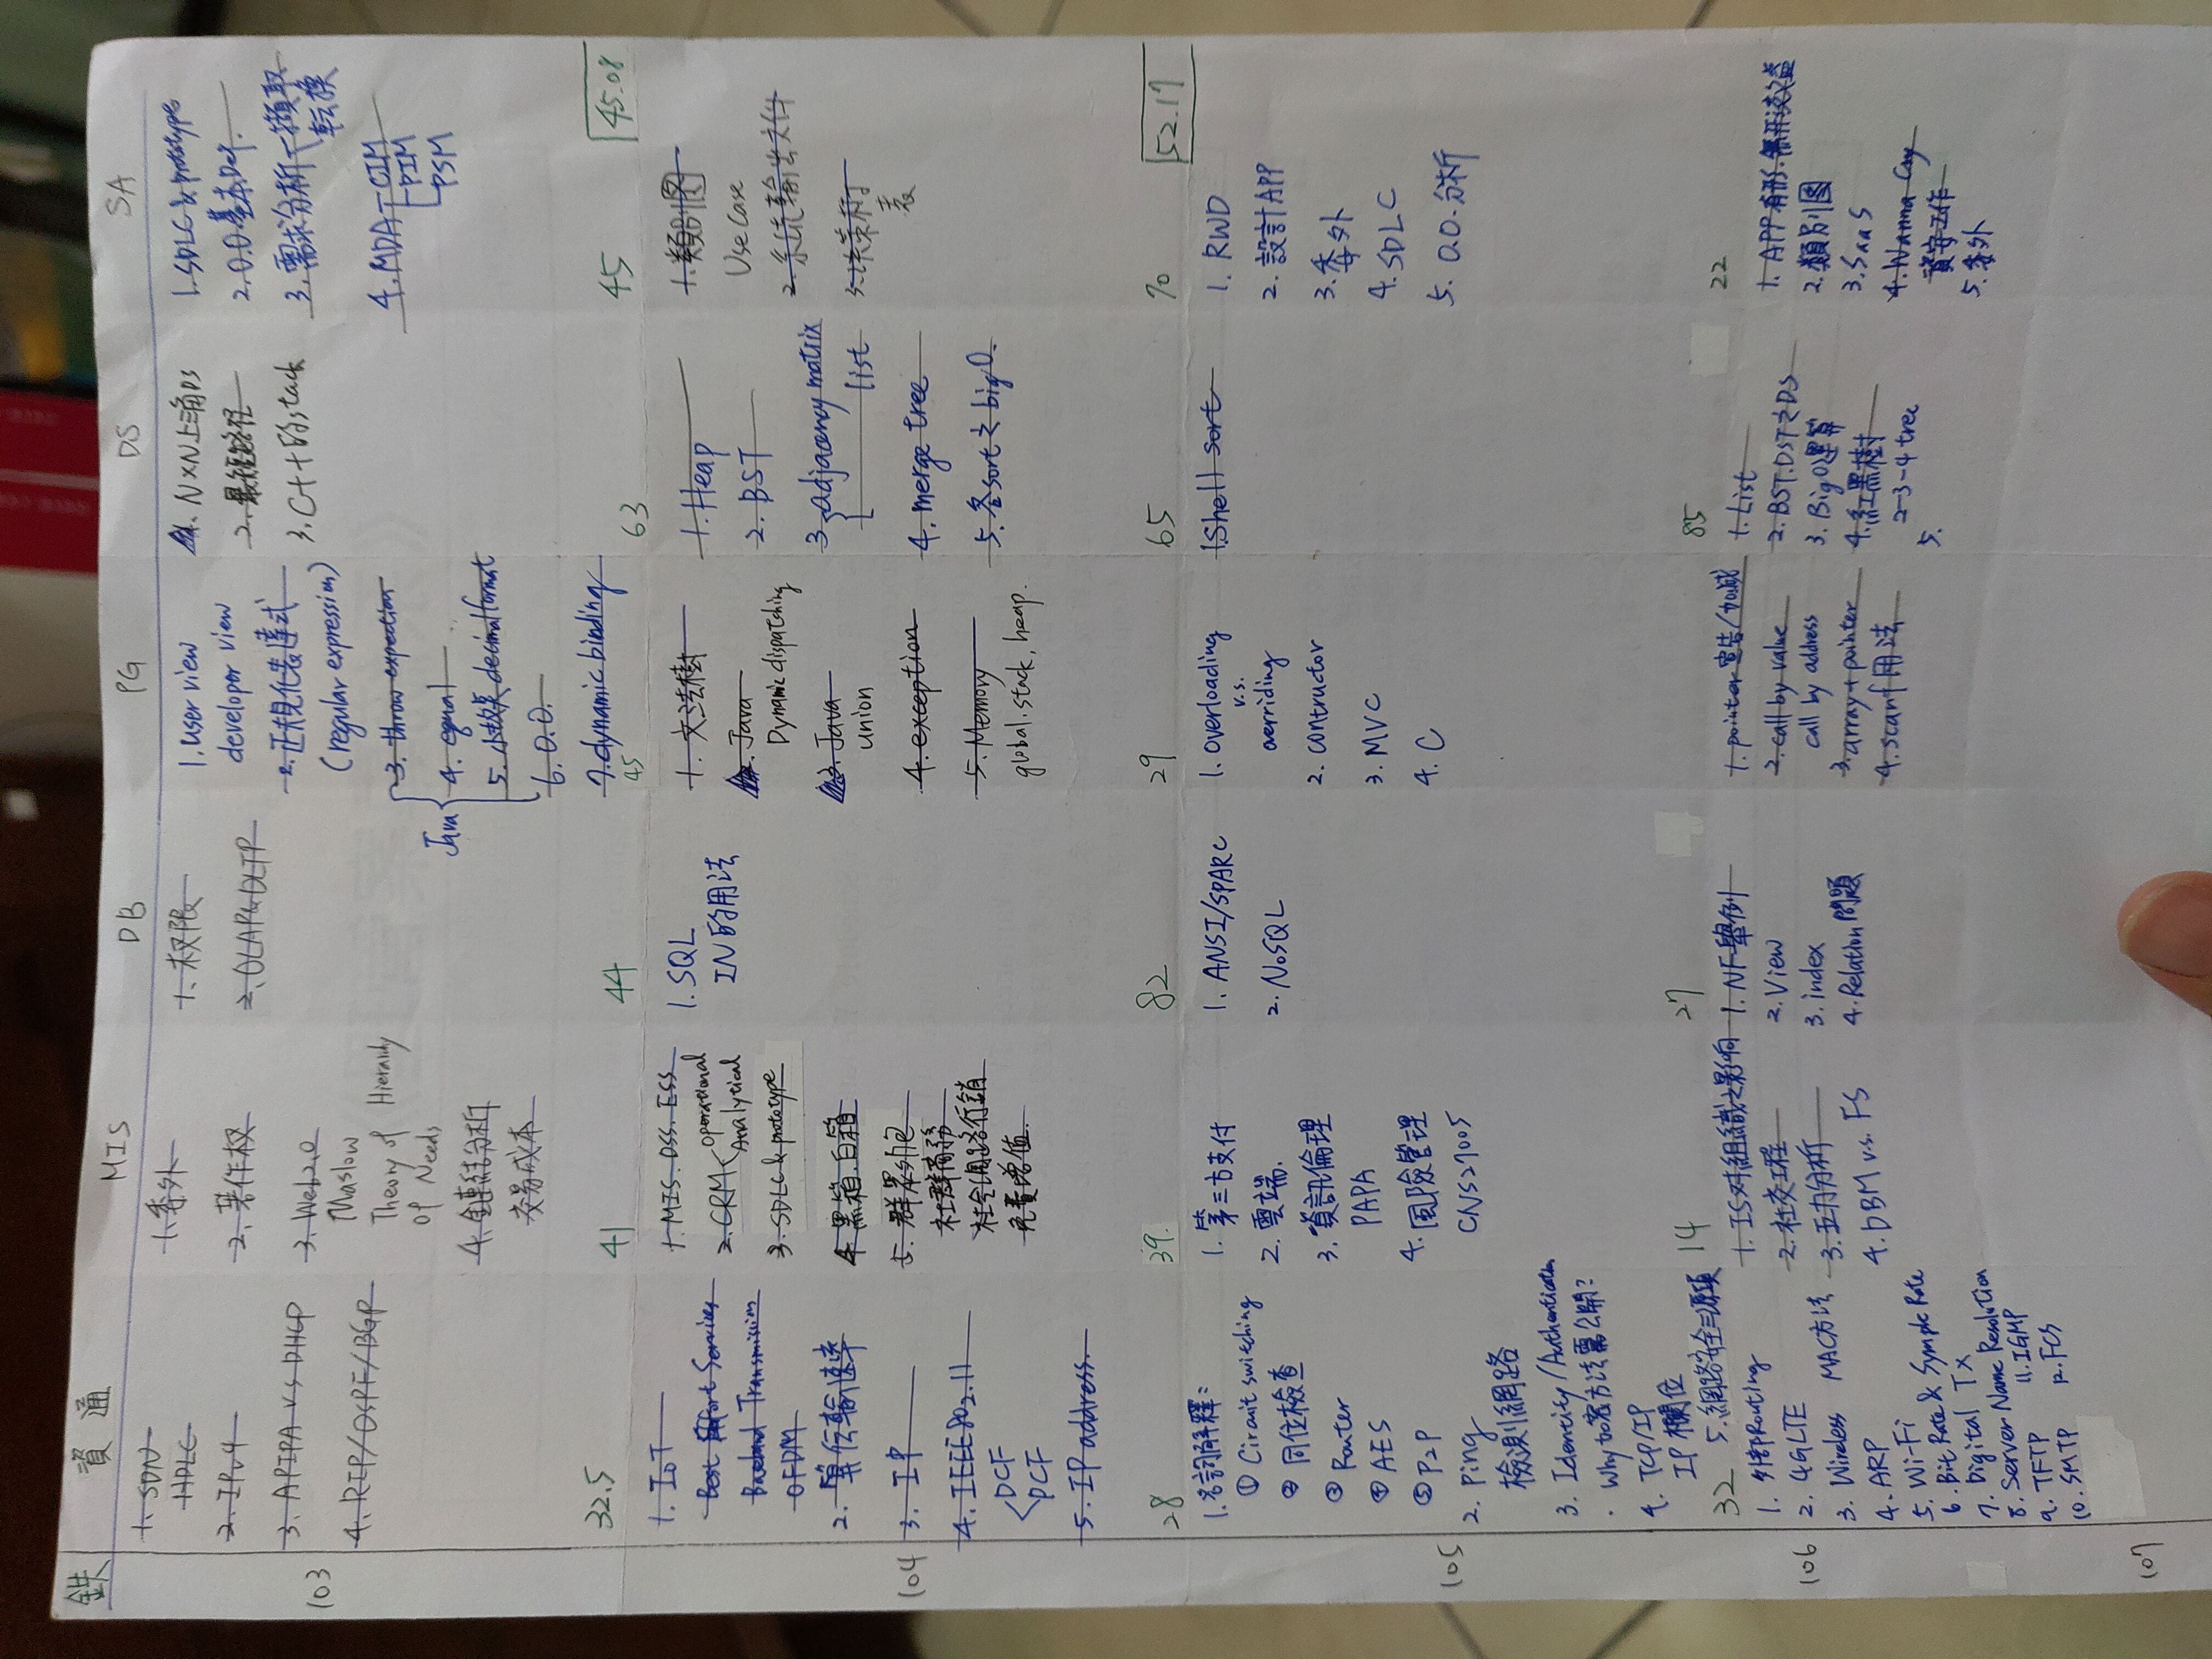 鉄 資通 MIS DB PG DS SA
103
1. SDN
HDLC
2. IPv4
3. APIPA vs DHCP
4. RIP/OSPF/BGP
32.5
1. 委外
2. 著作权
3. Web2.0
Maslow
Theory of Hierarchy
Of Needs
4. 鏈結分析
交易成本
41
1. 权限
2. OLAP&OLTP
44
1. user view
developer view
2. 正規化表達式
(regular expression)
Java
3. throw expection
4. equal
5. 小数点 decimalformat
6. O.O.
7. dynamic binding
45
1. N×N上三角DS
2. 最短路径
3. C++的stack
63
1. SDLC & prototype
2. O.O基本Def.
3. 需求分析 擷取
転換
4. MDA CIM
PIM
PSM
45
45.08
104
1. IoT
Best Effort Services
Baseband Transmission
OFDM
2. 算伝輸速率
3. IP
4. IEEE802.11
DCF
PCF
5. IP address.
28
1. MIS. DSS. ESS
2. CRM operational
Analytical
3. SDLC & prototype
4. 黑箱.白箱
5. 群眾外包
社群商務
社会網路行銷
免費增值.
39.
1. SQL
IN的用法
82
1. 文法樹
2. Java
Dynamic dispatching
3. Java
union
4. exception
5. Memory
global.stack, heap.
29
1. Heap
2. BST
3. adjacency matrix
list
4. merge tree
5. 各sort之bigO.
65
1. 類別图
Use case
2. 系統輸出文件
3. 決策樹
表
70
52.17
105
1. 名詞解釋:
① Circuit switching
② 同位檢查
③ Router
④ AES
⑤ P2P
2. Ping
檢測網路
3. Identity/Authentication
. Why加密方法需公開?
4. TCP/IP
IP欄位
5. 網路安全三源頭
32
1. 第三方支付
2. 雲端.
3. 資訊倫理
PAPA
4. 風險管理
CNS27005
14
1. ANSI/SPARC
2. NoSQL
27
1. overloading
v.s.
overriding
2. contructor
3. MVC
4. C
1. Shell sort
85
1. RWD
2. 設計APP
3. 委外
4. SDLC
5. O.O.分析
22
106
1. 外部Routing
2. 4GLTE
3. Wireless MAC方法
4. ARP
5. Wi-Fi
6. Bit Rate & Symple Rate
7. Digital Tx
8. Server Name Resolution
9. TFTP
10. SMTP
11. IGMP
12. FCS
1. IS对組織之影响
2. 社交工程
3. 五力分析
4. DBM v.s. FS
1. NF舉例
2. View
3. index
4. Relation問題
1. pointer宣告/加減
2. call by value
call by address
3. array+pointer
4. scanf用法
1. List
2. BST.DST之DS
3. BigO運算
4. 紅黑樹
2-3-4 tree
5.
1. APP有形.無形效益
2. 類別图
3. SaaS
4. Wanna Cry
資安工作
5. 委外
107